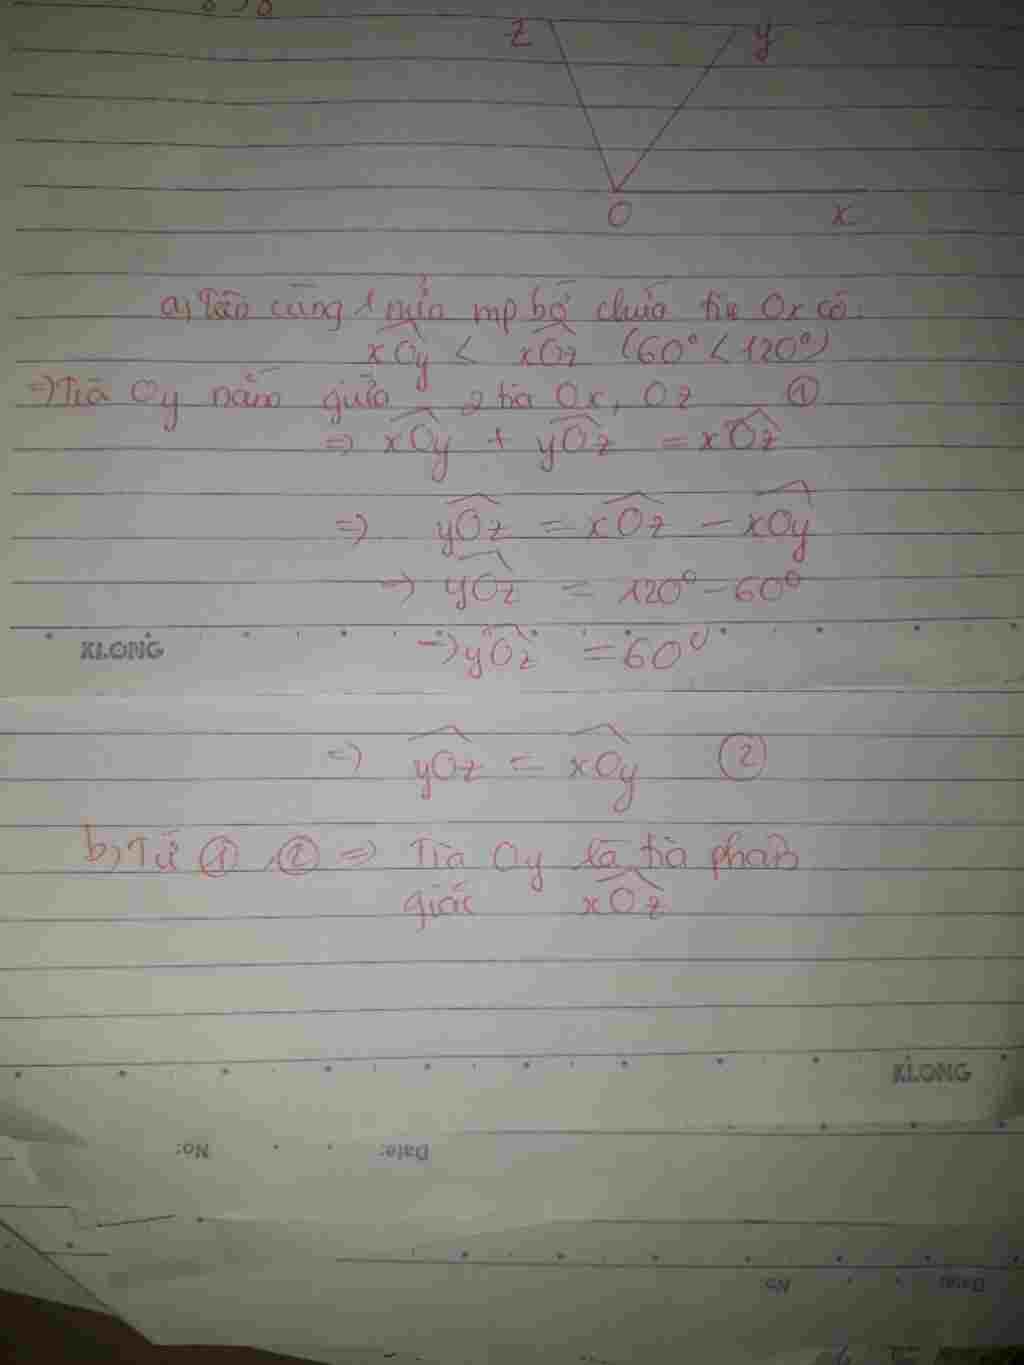 z y
O x
a, Trên cùng 1 nửa mp bờ chứa tia Ox có:
xOy < xOz (60° < 120°)
=> Tia Oy nằm giữa 2 tia Ox, Oz ①
=> xOy + yOz = xOz
=> yOz = xOz - xOy
=> yOz = 120° - 60°
=> yOz = 60°
KLONG
=> yOz = xOy ②
b, Từ ①, ② => Tia Oy là tia phân
giác xOz
KLONG
No: Date:
No Date: